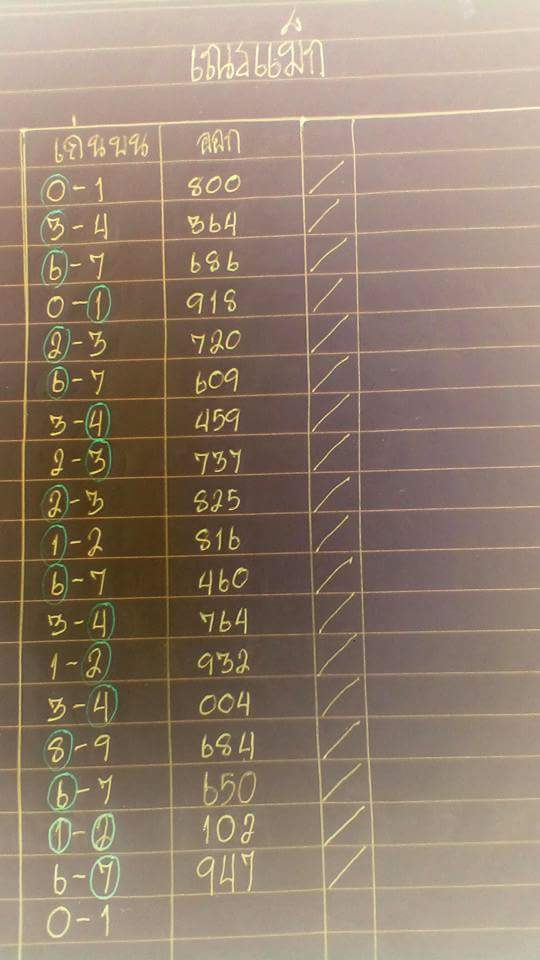 เณรแม็ก
เด่นบน ออก
0-1 800
3-4 364
6-7 686
0-1 918
2-3 720
6-7 609
3-4 459
2-3 737
2-3 825
1-2 816
6-7 460
3-4 764
1-2 932
3-4 004
8-9 684
6-7 650
1-2 102
6-7 947
0-1